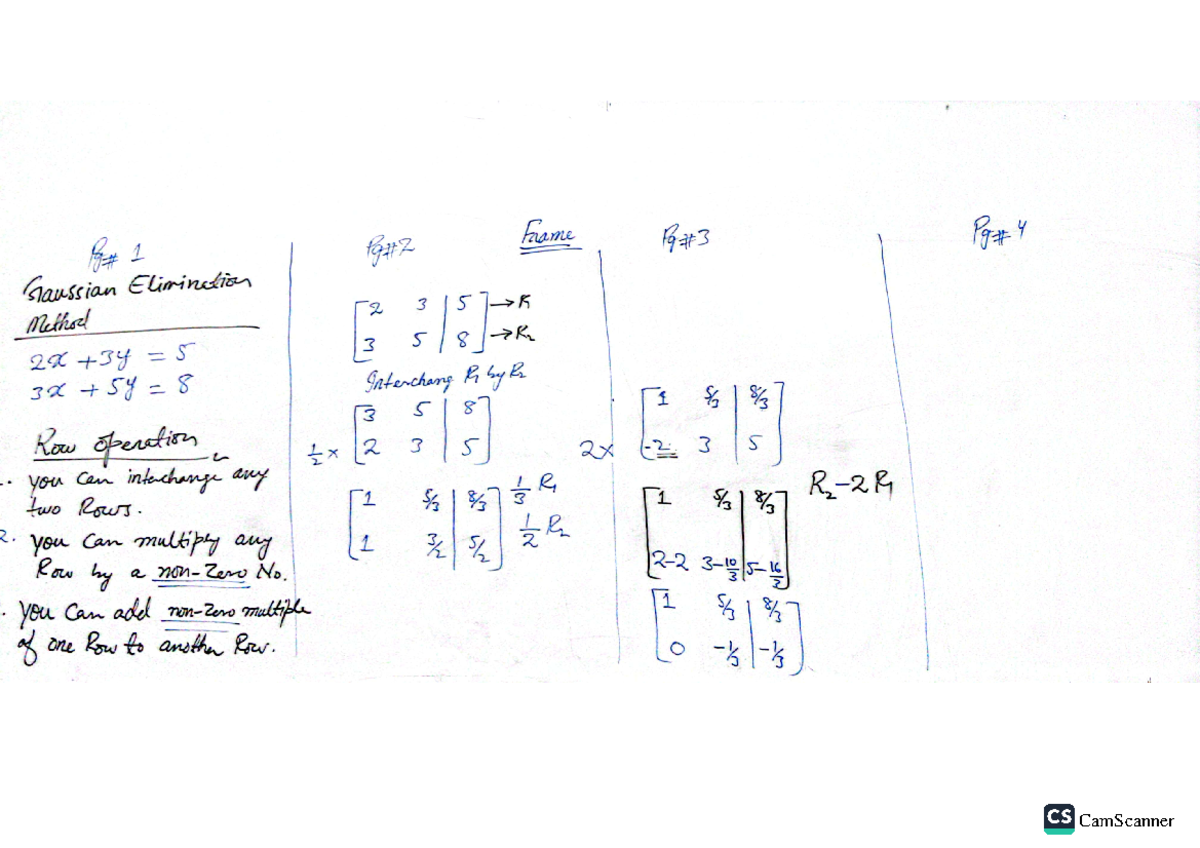 Pg# 1
Gaussian Elimination
Method
2x + 3y = 5
3x + 5y = 8
Row operation
1. you can interchange any
two Rows.
2. you can multiply any
Row by a non-Zero No.
. you can add non-zero multiple
of one Row to another Row.
Pg#2
Frame
[2 3 | 5] → R
[3 5 | 8] → R2
Interchang R1 by R2
[3 5 | 8]
1/2 × [2 3 | 5]
[1 5/3 | 8/3] 1/3 R1
[1 3/2 | 5/2] 1/2 R2
Pg#3
[1 5/3 | 8/3]
2× [-2 3 | 5]
R2-2R1
[1 5/3 | 8/3]
[2-2 3-10/3 | 5-16/3]
[1 5/3 | 8/3]
[0 -1/3 | -1/3]
Pg#4
CS CamScanner